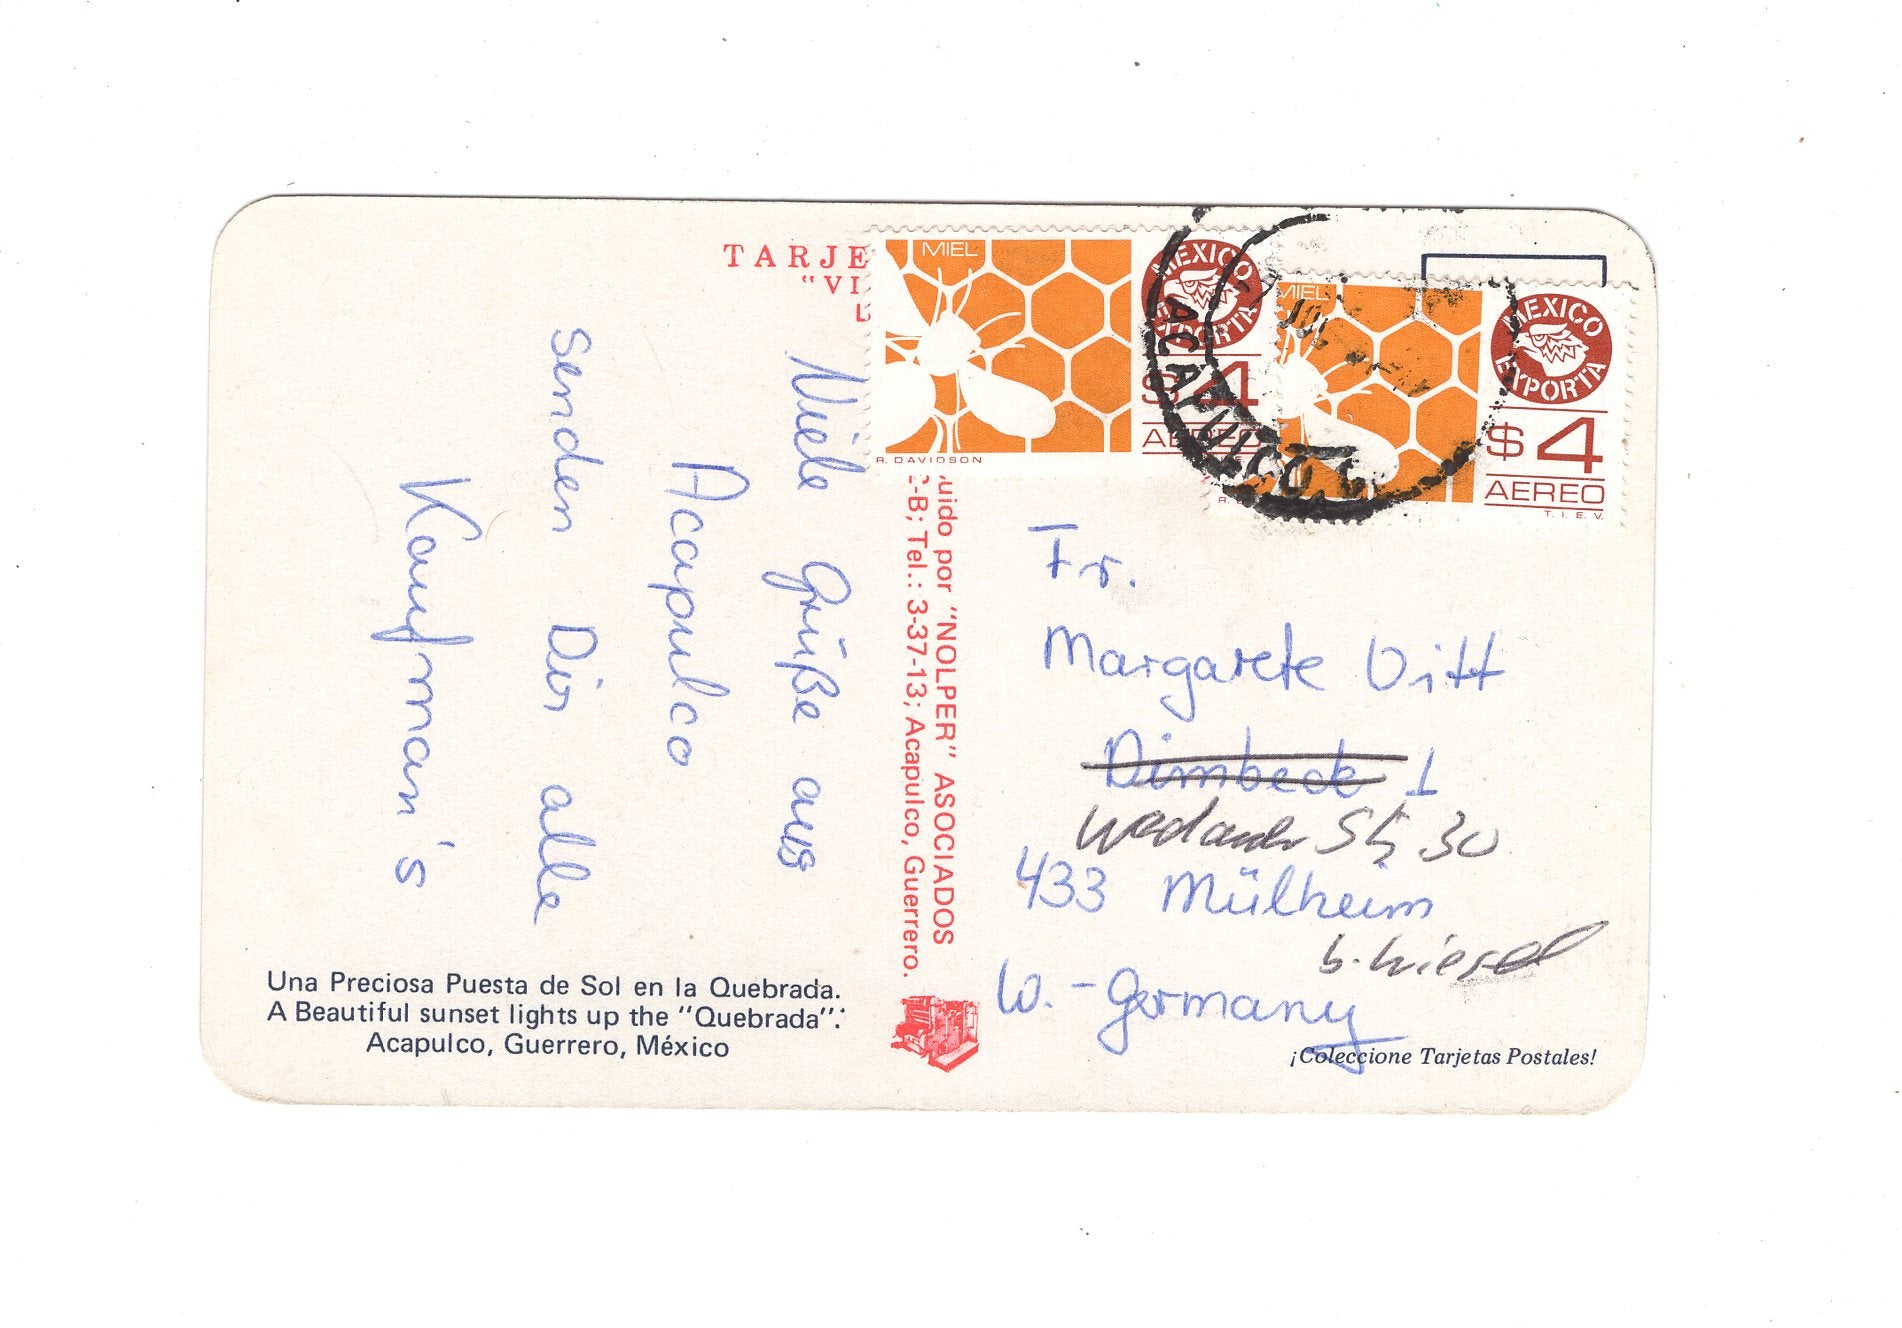 TARJE
"VI
MIEL
MEXICO
EXPORTA
$4
AEREO
R. DAVIDSON
MIEL
MEXICO
EXPORTA
$4
AEREO
T. I. E. V.
ACAPULCO, G
JUL
Viele Grüße aus
Acapulco
senden Dir alle
Kaufman's
uido por "NOLPER" ASOCIADOS
-B; Tel.: 3-37-13; Acapulco, Guerrero.
Fr.
Margarete Vitt
Dimbeck 1
Str. 30
433 Mülheim
W.-Germany
Una Preciosa Puesta de Sol en la Quebrada.
A Beautiful sunset lights up the "Quebrada".
Acapulco, Guerrero, México
¡Coleccione Tarjetas Postales!